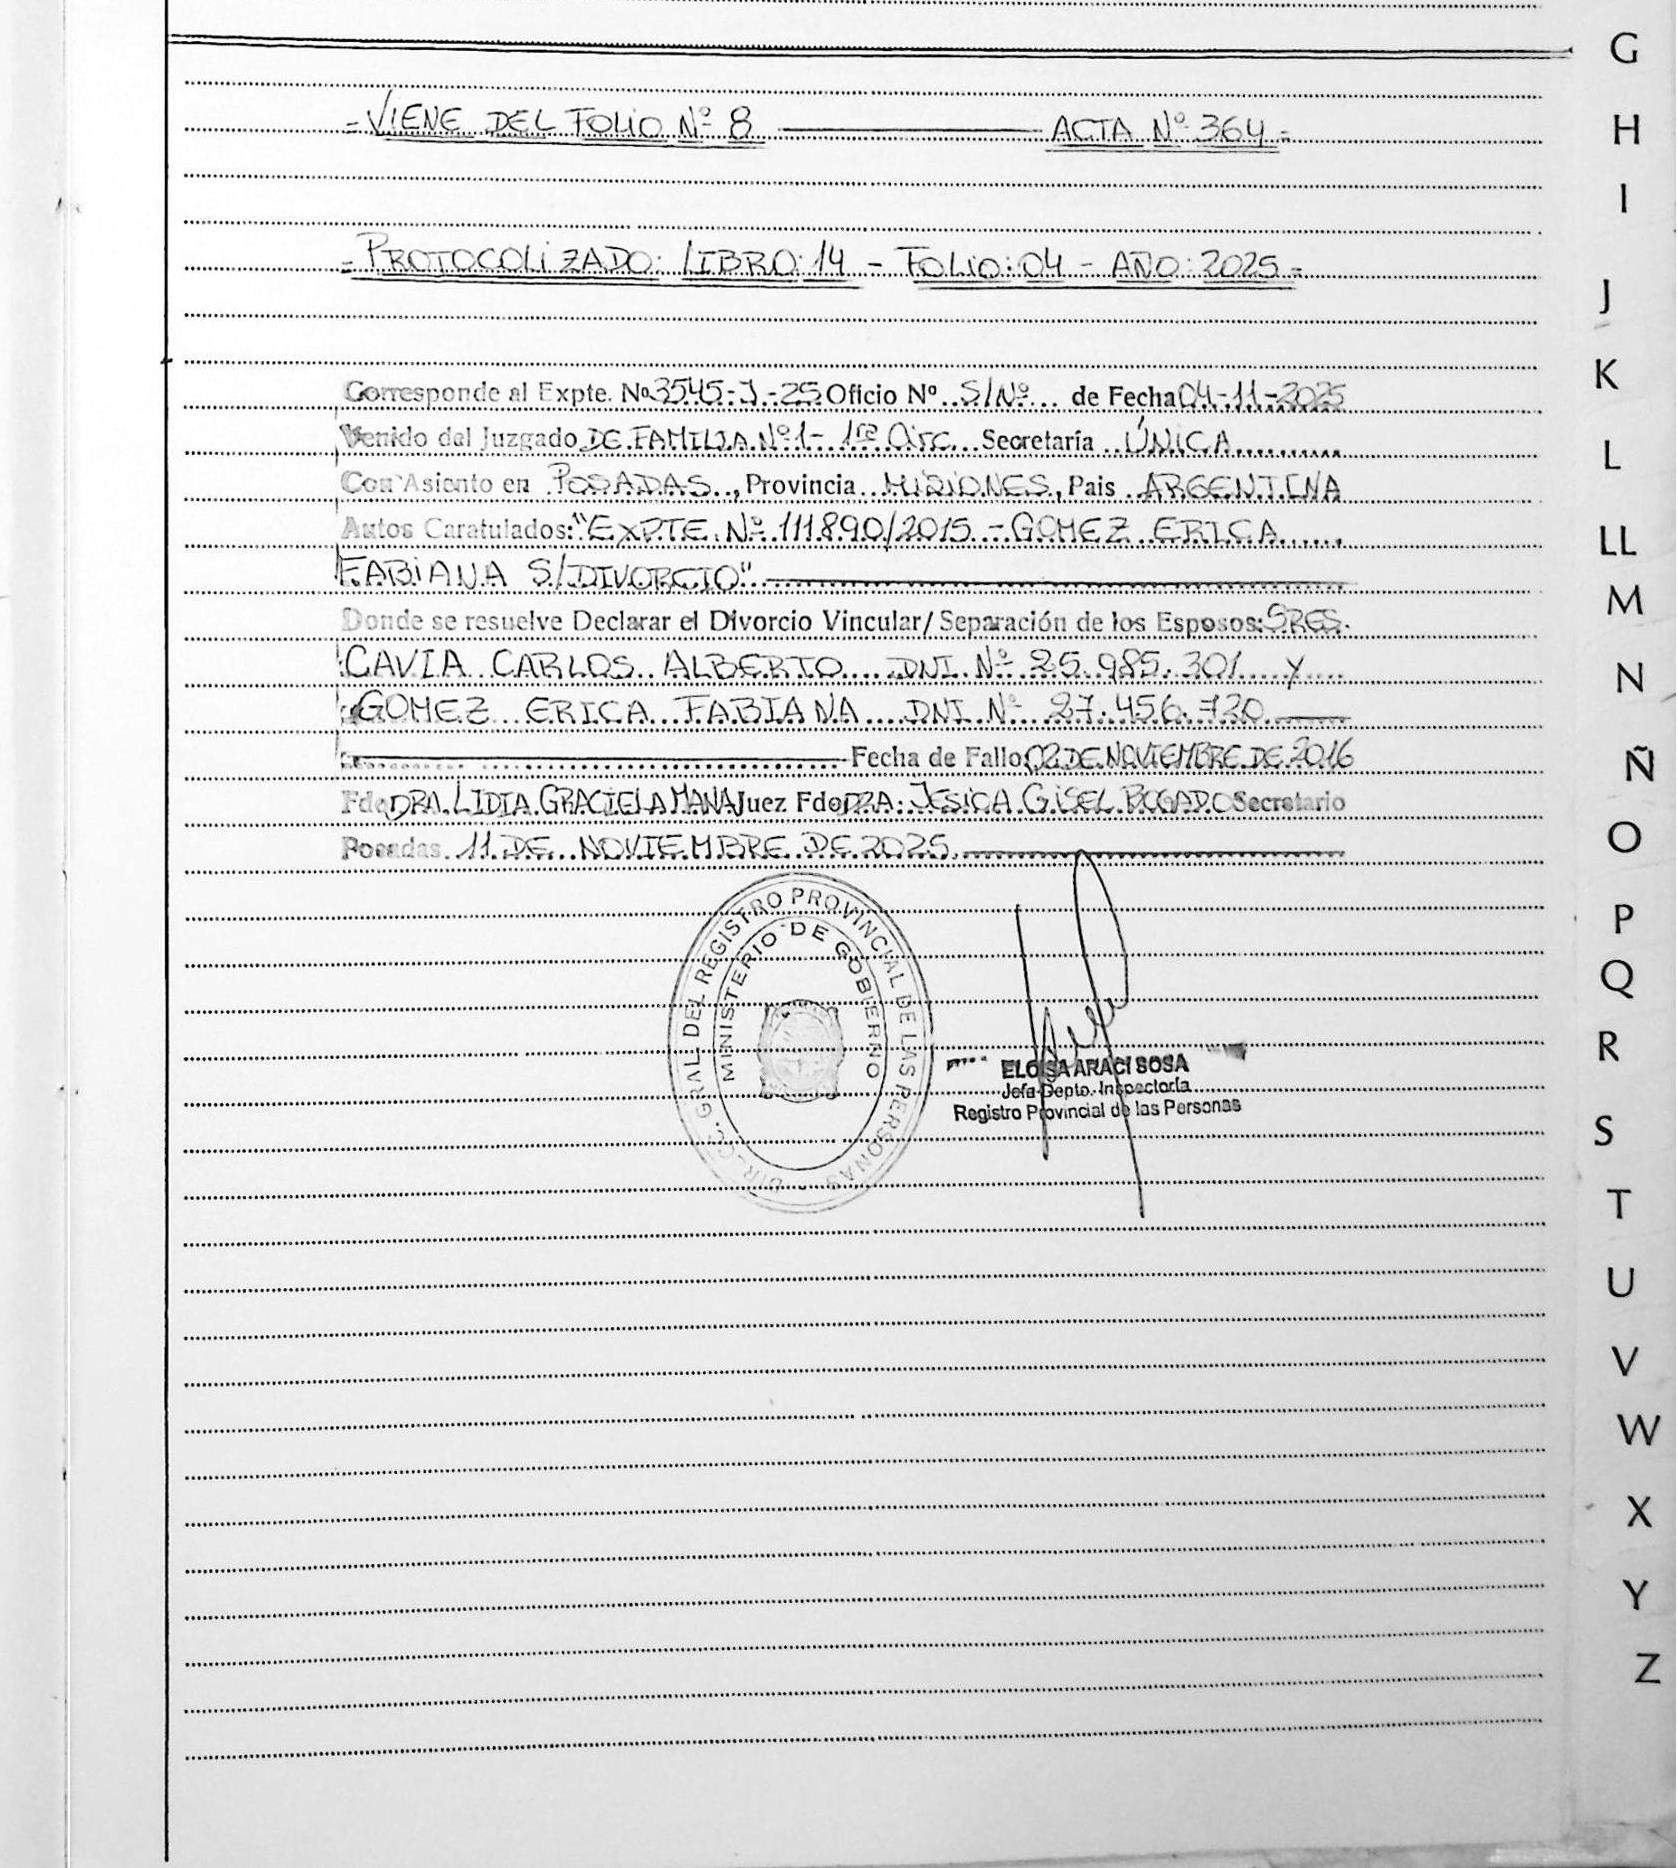 G
= VIENE DEL FOLIO Nº 8 ACTA Nº 364 =
H
I
= PROTOCOLIZADO: LIBRO: 14 - FOLIO: 04 - AÑO: 2025 =
J
K
Corresponde al Expte. Nº 3545-J-25 Oficio Nº S/Nº de Fecha 04-11-2025
Venido del Juzgado DE FAMILIA Nº 1 - 1ra Circ. Secretaría ÚNICA
L
Con Asiento en POSADAS, Provincia MISIONES, Pais ARGENTINA
Autos Caratulados: "EXPTE. Nº 111890/2015 - GOMEZ ERICA
LL
FABIANA S/DIVORCIO"
M
Donde se resuelve Declarar el Divorcio Vincular/ Separación de los Esposos: SRES.
CAVIA CARLOS ALBERTO DNI Nº 25.985.301 Y
N
GOMEZ ERICA FABIANA DNI Nº 27.456.720
Fecha de Fallo 02 DE NOVIEMBRE DE 2016
Ñ
Fdo DRA. LIDIA GRACIELA MANA Juez Fdo DRA. JESICA GISEL BOGADO Secretario
Posadas 11 DE NOVIEMBRE DE 2025
O
P
Q
R
DIRECC. GRAL. DEL REGISTRO PROVINCIAL DE LAS PERSONAS
MINISTERIO DE GOBIERNO
ELOISA ARACI SOSA
Jefa Depto. Inspectoría
Registro Provincial de las Personas
S
T
U
V
W
X
Y
Z